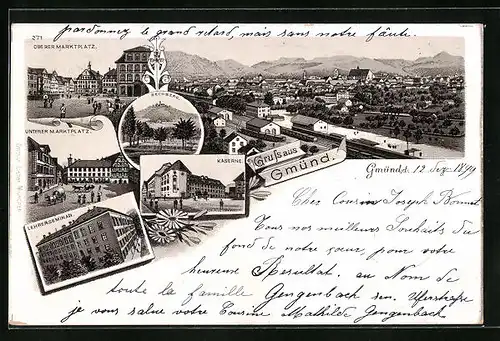 pardonnez le grand retard, mais sans notre faute.
271
OBERER MARKTPLATZ.
RECHBERG.
UNTERER MARKTPLATZ.
KASERNE.
Gruß aus
Gmünd.
LEHRERSEMINAR.
Gmünd, 12. 1899
Cher Cousin Joseph
Tous nos meilleurs Souhaits du
fond de notre cœur, pour votre
heureuse au Nom de
toute la famille Gengenbach sen. Uferstraße
je vous salue votre Cousine Mathilde Gengenbach